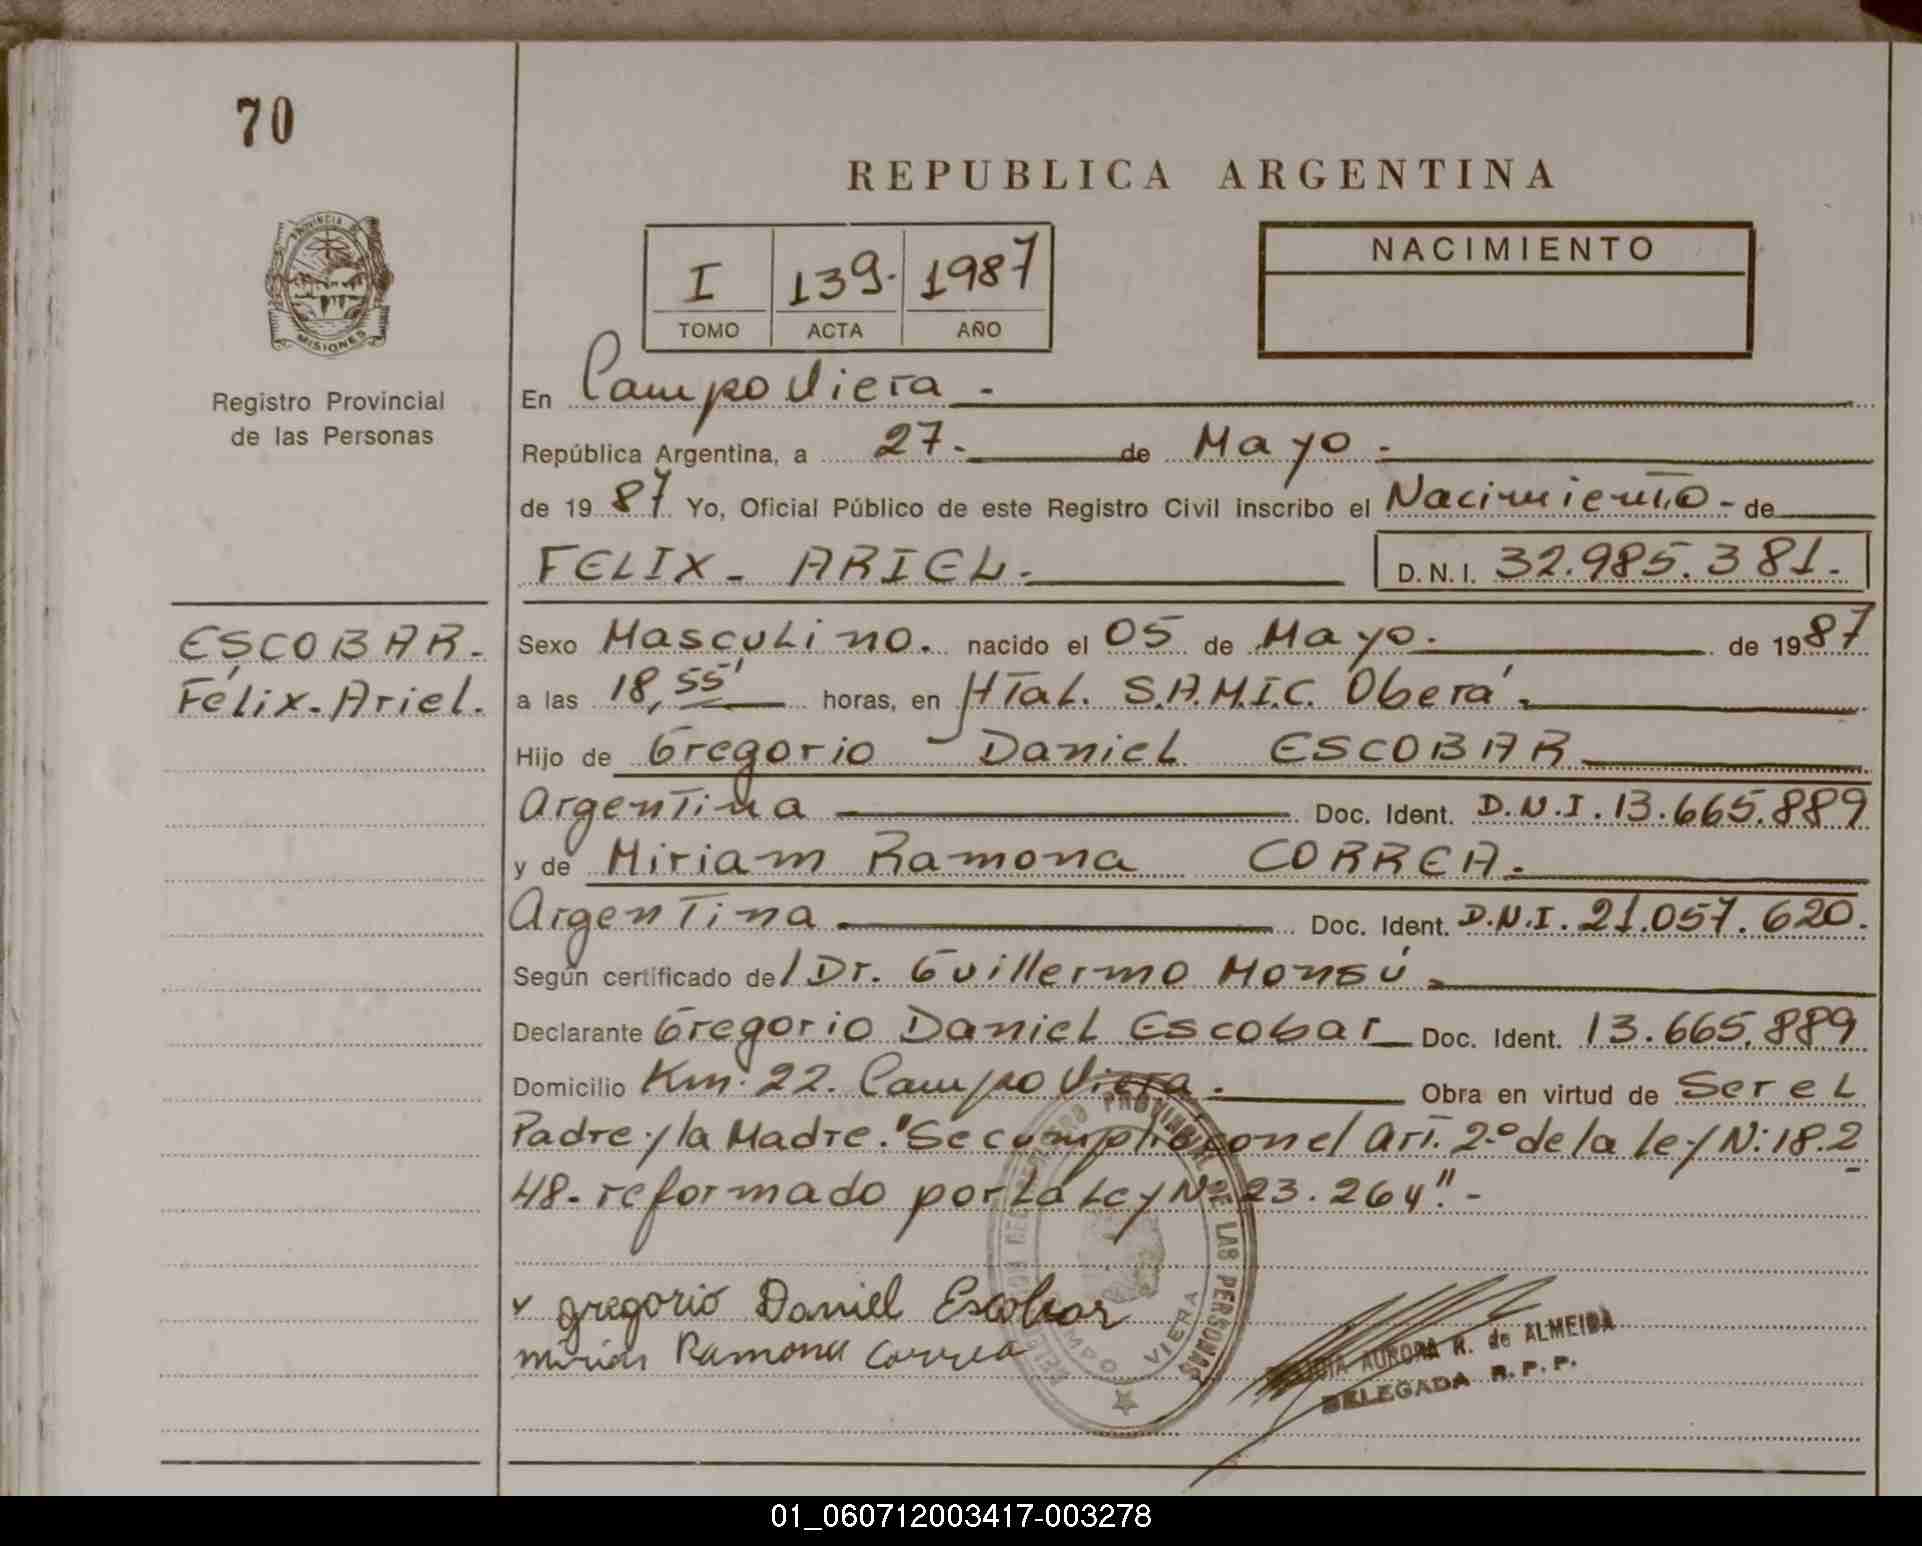 70
REPUBLICA ARGENTINA
PROVINCIA DE
MISIONES
Registro Provincial
de las Personas
I 139. 1987
TOMO ACTA AÑO
NACIMIENTO
En Campo Viera -
República Argentina, a 27. de Mayo.
de 19 87 Yo, Oficial Público de este Registro Civil inscribo el Nacimiento - de
FELIX - ARIEL. D.N.I. 32.985.381.
ESCOBAR.
Félix-Ariel.
Sexo Masculino. nacido el 05 de Mayo. de 19 87
a las 18,55' horas, en HTal. S.A.M.I.C. Oberá.
Hijo de Gregorio - Daniel ESCOBAR
Argentina Doc. Ident. D.N.I. 13.665.889
y de Miriam Ramona CORREA.
Argentina Doc. Ident. D.N.I. 21.057.620.
Según certificado de/ Dr. Guillermo Monsú.
Declarante Gregorio Daniel Escobar Doc. Ident. 13.665.889
Domicilio Km. 22. Campo Viera. Obra en virtud de Ser el
Padre y la Madre. "Se cumplió con el Art. 2º de la ley N: 18.2
48- reformado por la Ley Nº 23.264". -
REGISTRO PROVINCIAL DE LAS PERSONAS
CAMPO VIERA
x gregorio Daniel Escobar
Ramona Correa
AURORA R. de ALMEIDA
DELEGADA R.P.P.
01_060712003417-003278